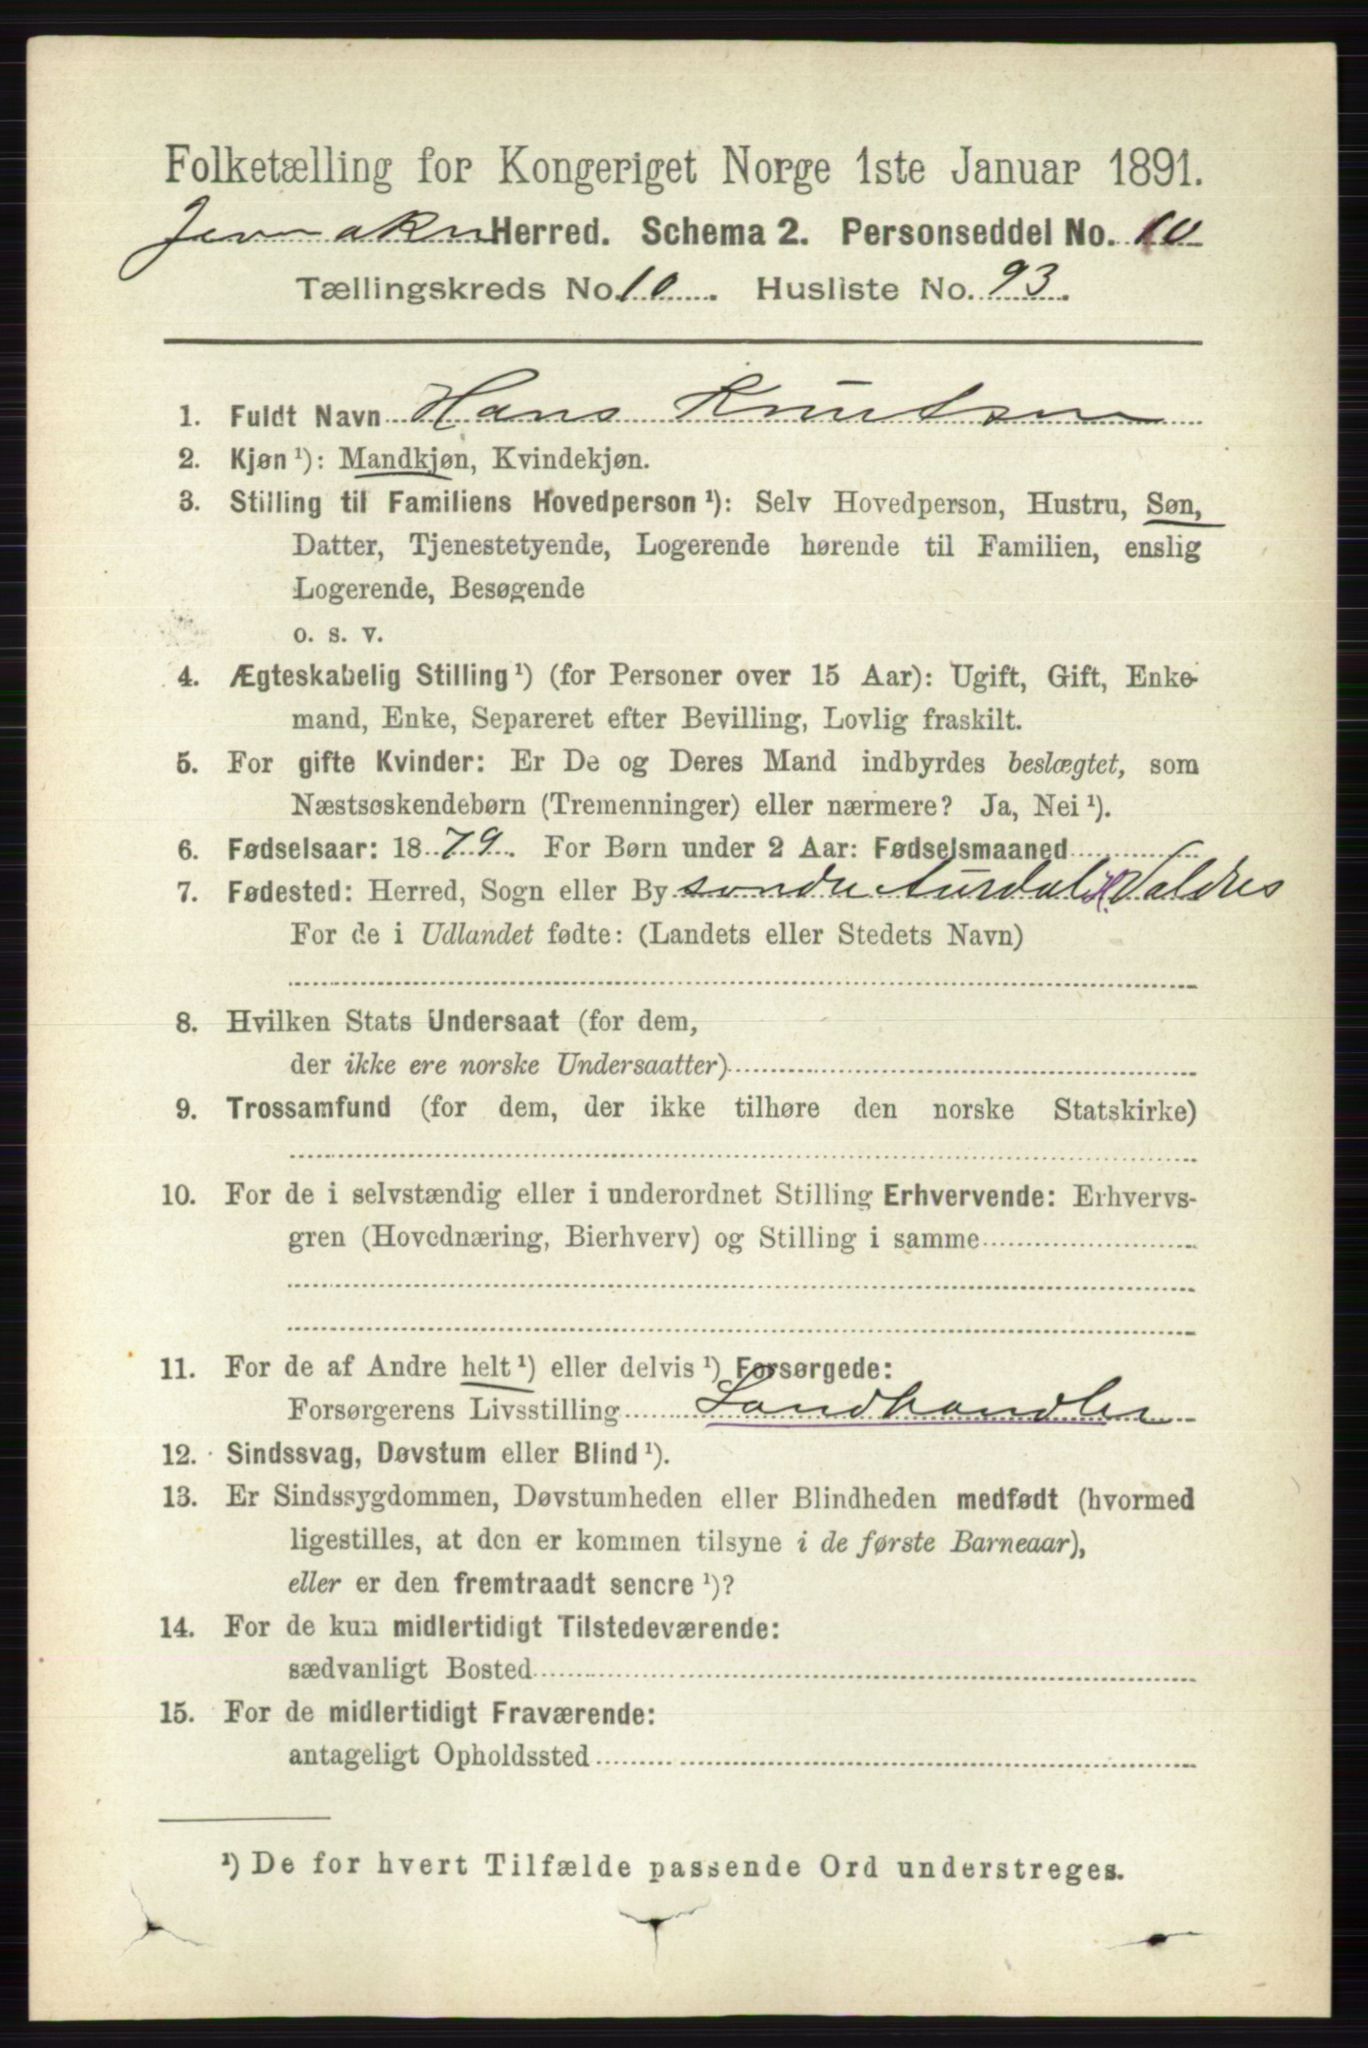 Folketælling for Kongeriget Norge 1ste Januar 1891.
Jevnaker Herred. Schema 2. Personseddel No. 10
Tællingskreds No. 10. Husliste No. 93.
1. Fuldt Navn Hans Knutsen
2. Kjøn ¹): Mandkjøn, Kvindekjøn.
3. Stilling til Familiens Hovedperson ¹): Selv Hovedperson, Hustru, Søn,
Datter, Tjenestetyende, Logerende hørende til Familien, enslig
Logerende, Besøgende
o. s. v.
4. Ægteskabelig Stilling ¹) (for Personer over 15 Aar): Ugift, Gift, Enke-
mand, Enke, Separeret efter Bevilling, Lovlig fraskilt.
5. For gifte Kvinder: Er De og Deres Mand indbyrdes beslægtet, som
Næstsøskendebørn (Tremenninger) eller nærmere? Ja, Nei ¹).
6. Fødselsaar: 1879. For Børn under 2 Aar: Fødselsmaaned
7. Fødested: Herred, Sogn eller By søndre Aurdal Valdres
For de i Udlandet fødte: (Landets eller Stedets Navn)
8. Hvilken Stats Undersaat (for dem,
der ikke ere norske Undersaatter)
9. Trossamfund (for dem, der ikke tilhøre den norske Statskirke)
10. For de i selvstændig eller i underordnet Stilling Erhvervende: Erhvervs-
gren (Hovednæring, Bierhverv) og Stilling i samme
11. For de af Andre helt ¹) eller delvis ¹) Forsørgede:
Forsørgerens Livsstilling Landhandler
12. Sindssvag, Døvstum eller Blind ¹).
13. Er Sindssygdommen, Døvstumheden eller Blindheden medfødt (hvormed
ligestilles, at den er kommen tilsyne i de første Barneaar),
eller er den fremtraadt senere ¹)?
14. For de kun midlertidigt Tilstedeværende:
sædvanligt Bosted
15. For de midlertidigt Fraværende:
antageligt Opholdssted
¹) De for hvert Tilfælde passende Ord understreges.